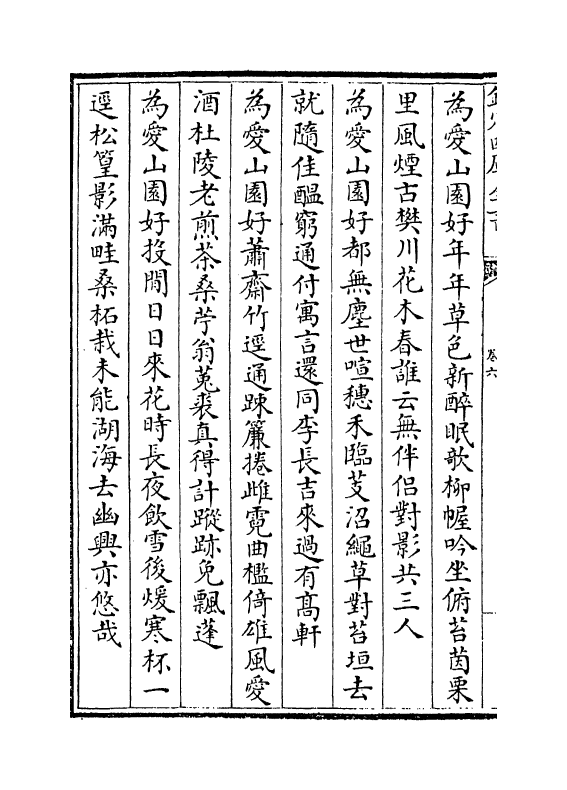 為愛山園好年年草色新醉眠歌柳幄吟坐俯苔茵栗
里風煙古樊川花木春誰云無伴侣對影共三人
為愛山園好都無塵世喧穗禾臨芰沼繩草對苔垣去
就隨佳醖窮通付寓言還同李長吉來過有髙軒
為愛山園好蕭齋竹逕通踈簾捲雌霓曲檻倚雄風愛
酒杜陵老煎茶桑苧翁菟裘真得計蹤跡免飄蓬
為愛山園好投閒日日來花時長夜飲雪後煖寒杯一
逕松篁影滿畦桑柘栽未能湖海去幽興亦悠哉
卷六